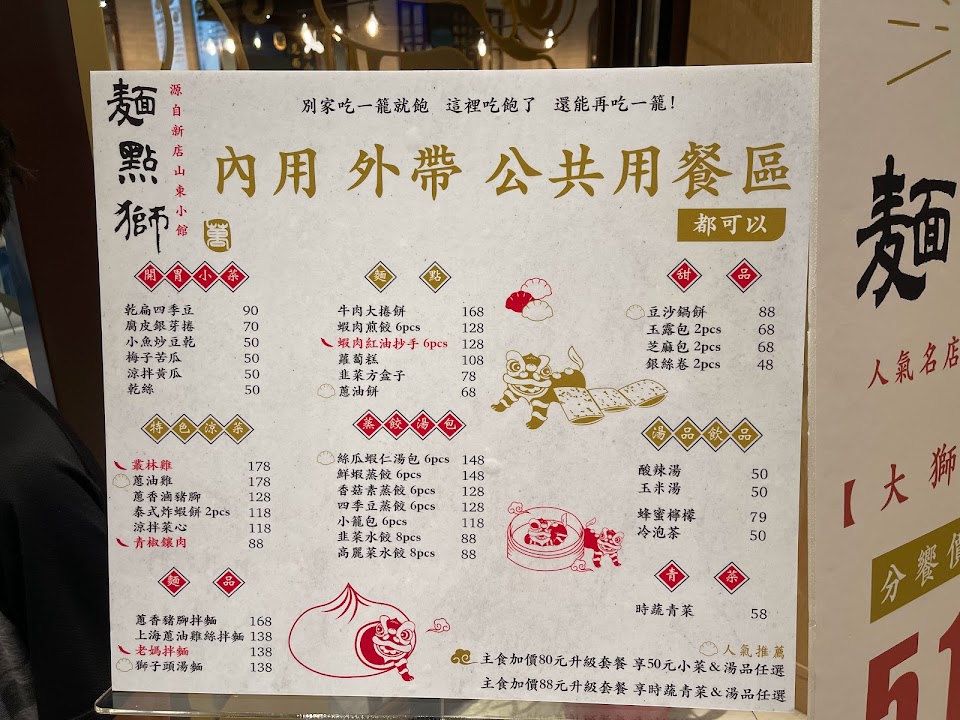 麵點獅
源自新店山東小館
萬
別家吃一籠就飽 這裡吃飽了 還能再吃一籠!
內用 外帶 公共用餐區
都可以
開胃小菜
乾扁四季豆 90
腐皮銀芽捲 70
小魚炒豆乾 50
梅子苦瓜 50
涼拌黃瓜 50
乾絲 50
特色涼菜
叢林雞 178
蔥油雞 178
蔥香滷豬腳 128
泰式炸蝦餅 2pcs 118
涼拌菜心 118
青椒鑲肉 88
麵品
蔥香豬腳拌麵 168
上海蔥油雞絲拌麵 138
老媽拌麵 138
獅子頭湯麵 138
麵點
牛肉大捲餅 168
蝦肉煎餃 6pcs 128
蝦肉紅油抄手 6pcs 128
蘿蔔糕 108
韭菜方盒子 78
蔥油餅 68
蒸餃湯包
絲瓜蝦仁湯包 6pcs 148
鮮蝦蒸餃 6pcs 148
香菇素蒸餃 6pcs 128
四季豆蒸餃 6pcs 128
小籠包 6pcs 118
韭菜水餃 8pcs 88
高麗菜水餃 8pcs 88
甜品
豆沙鍋餅 88
玉露包 2pcs 68
芝麻包 2pcs 68
銀絲卷 2pcs 48
湯品飲品
酸辣湯 50
玉米湯 50
蜂蜜檸檬 79
冷泡茶 50
青菜
時蔬青菜 58
人氣推薦
主食加價80元升級套餐 享50元小菜&湯品任選
主食加價88元升級套餐 享時蔬青菜&湯品任選
麵
人氣名店
【大獅
分饗價
51